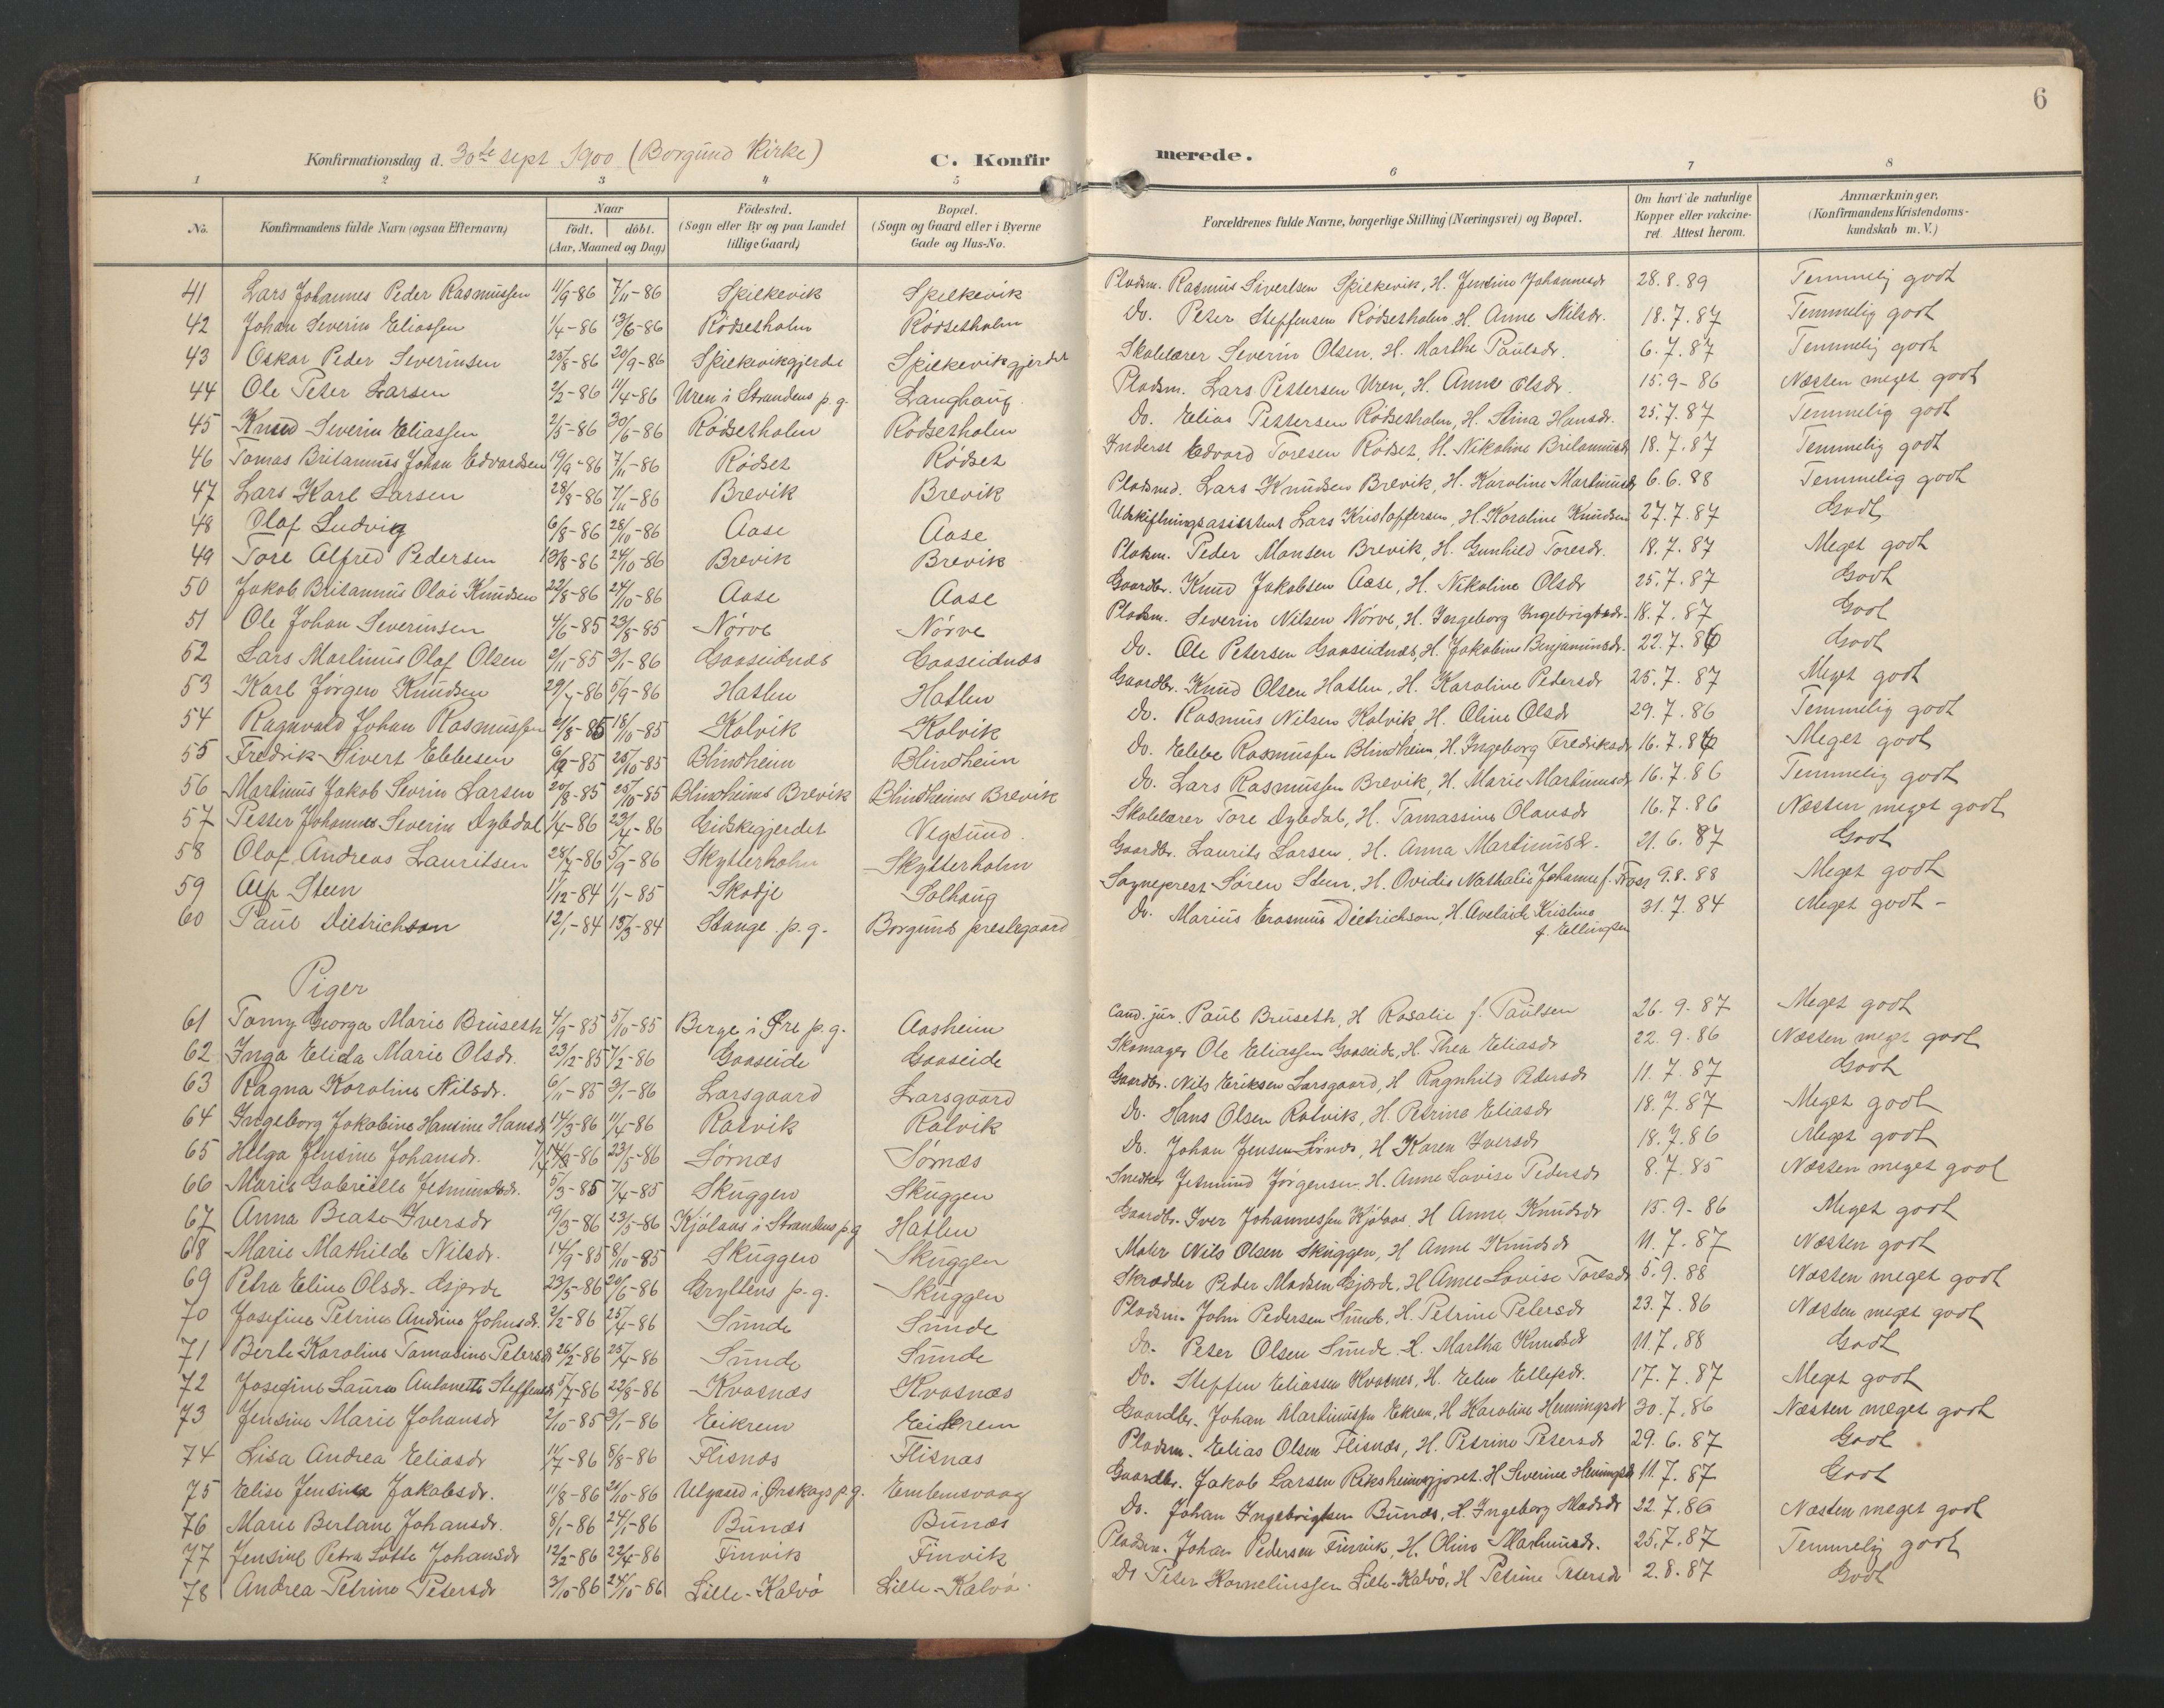 6
Konfirmationsdag d. 30te sept 1900 (Borgund Kirke) C. Konfirmerede.
1 2 3 4 5 6 7 8
No. Konfirmandens fulde Navn (ogsaa Efternavn) Naar født. døbt. (Aar, Maaned og Dag) Fødested. (Sogn eller By og paa Landet tillige Gaard) Bopæl. (Sogn og Gaard eller i Byerne Gade og Hus-No. Forældrenes fulde Navne, borgerlige Stilling (Næringsvei) og Bopæl. Om havt de naturlige Kopper eller vaccineret. Attest herom. Anmærkninger. (Konfirmandens Kristendomskundskab m. V.)
41 Lars Johannes Peder Rasmussen 11/9-86 7/11-86 Spilkevik Spilkevik Pladsm. Rasmus Sivertsen Spilkevik, H. Jensine Johannesdr 28.8.89 Temmelig godt
42 Johan Severin Eliassen 1/4-86 13/6-86 Rødsetholm Rødsetholm Do. Peter Steffensen Rødsetholm, H. Anne Nilsdr. 18.7.87 Temmelig godt
43 Oskar Peder Severinsen 25/8-86 20/9-86 Spilkevikgjerdet Spilkevikgjerdet Skolelærer Severin Olsen, H. Marthe Paulsdr. 6.7.87 Temmelig godt
44 Ole Peter Larsen 2/2-86 11/4-86 Uren i Strandens p.g. Langhaug. Pladsm. Lars Pettersen Uren, H. Anne Olsdr. 15.9-86 Næsten meget godt
45 Knud Severin Eliassen 2/5-86 30/6-86 Rødsetholm Rødsetholm Do. Elias Pettersen Rødsetholm, H. Stina Hansdr. 25.7.87 Temmelig godt
46 Tomas Britannus Johan Edvardsen 19/9-86 7/11-86 Rødset Rødset Inderst Edvard Toresen Rødset, H. Nikoline Britannusdr 18.7.87 Temmelig godt
47 Lars Karl Larsen 28/8-86 7/11-86 Brevik Brevik Pladsmd. Lars Knudsen Brevik, H. Karoline Martinusdr 6.6.88 Temmelig godt
48 Olaf Ludvig 6/8-86 28/10-86 Aase Aase Udskiftningsassistent Lars Kristoffersen, H. Karoline Knudsen 27.7.87 Godt
49 Tore Alfred Pedersen 13/8-86 24/10-86 Brevik Brevik Pladsm. Peder Monsen Brevik, H. Gunhild Toresdr. 18.7.87 Meget godt
50 Jakob Britannus Olai Knudsen 22/8-86 24/10-86 Aase Aase Gaardbr. Knud Jakobsen Aase, H. Nikoline Olsdr 25.7.87 Godt
51 Ole Johan Severinsen 4/6-85 23/8-85 Nørve Nørve Pladsm. Severin Nilsen Nørve, H. Ingeborg Ingebrigtsdr. 18.7.87 Godt
52 Lars Martinus Olaf Olsen 2/11-85 3/1-86 Gaaseidnæs Gaaseidnæs Do. Ole Petersen Gaaseidnæs, H. Jakobine Benjaminsdr. 22.7.86 Godt
53 Karl Jørgen Knudsen 29/7-86 5/9-86 Hatlen Hatlen Gaardbr. Knud Olsen Hatlen, H. Karoline Pedersdr 25.7.87 Meget godt
54 Ragnvald Johan Rasmussen 21/8-85 18/10-85 Kalvik Kalvik Do. Rasmus Nilsen Kalvik H. Oline Olsdr 29.7.86 Temmelig godt
55 Fredrik Sivert Ebbesen 6/9-85 25/10-85 Blindheim Blindheim Do. Ebbe Rasmussen Blindheim, H. Ingeborg Fredriksdr 16.7.86 Meget godt
56 Martinus Jakob Sevrin Larsen 20/8-85 25/10-85 Blindheims Brevik Blindheims Brevik Do. Lars Rasmussen Brevik, H. Marie Martinusdr 16.7.86 Temmelig godt
57 Petter Johannes Severin Dybdal 1/4-86 23/4-86 Gidskegjerdet Vegsund. Skolelærer Tore Dybdal, H. Tamassine Olausdr 16.7.86 Næsten meget godt
58 Olaf Andreas Lauritsen 28/7-86 5/9-86 Skytterholm Skytterholm Gaardbr. Laurits Larsen, H. Anna Martinusdr. 21.6.87 Godt
59 Alf Steen 1/12-84 1/1-85 Skodje Solhaug Sogneprest Søren Steen, H. Ovidia Nathalie Johanne f. 9.8.88 Meget godt
60 Paul Dietrichson 12/1-84 13/3-84 Stange p.g. Borgund prestegaard Do. Marius Erasmus Dietrichson, H. Avelaide Kristine f. Ellingsen 31.7.84 Meget godt -
Piger
61 Tomy Georga Marie Bruseth 4/9-85 5/10-85 Berge i Øre p.g. Aasheim Cand. jur. Paul Bruseth, H Rosalie f. Paulsen 26.9.87 Meget godt
62 Inga Elida Marie Olsdr. 23/12-85 7/2-86 Gaaseide Gaaseide Skomager Ole Eliassen Gaaseide, H. Thea Eliasdr 22.9.86 Næsten meget godt
63 Ragna Karoline Nilsdr. 6/11-85 3/1-86 Larsgaard Larsgaard Gaardbr. Nils Eriksen Larsgaard, H Ragnhild Pedersdr 11.7.87 Godt
64 Ingeborg Jakobine Hansine Hansdr 14/3-86 11/4-86 Ratvik Ratvik Do. Hans Olsen Ratvik, H. Petrine Eliasdr 18.7.87 Meget godt
65 Helga Jensine Johansdr. 14/3-86 23/5-86 Sørnæs Sørnæs Do. Johan Jensen Sørnæs, H Karen Iversdr 18.7.86 Meget godt
66 Marie Gabrielle Jetmundsdr. 5/3-85 7/4-85 Skuggen Skuggen Snedker Jetmund Jørgensen, H. Anne Lovise Pedersdr 8.7.85 Næsten meget godt
67 Anna Beate Iversdr 19/3-86 23/5-86 Kjølaas i Strandens p.g Hatlen Gaardbr. Iver Johannessen Kjølaas H Anne Knudsdr 15.9-86 Meget godt
68 Marie Mathilde Nilsdr. 14/9-85 8/10-85 Skuggen Skuggen Maler Nils Olsen Skuggen, H Anne Knudsdr 11.7.87 Næsten godt
69 Petra Eline Olsdr. Gjerde 23/5-86 20/6-86 Gryttens p.g. Skuggen Skrædder Peder Madsen Gjerde, H Anne Lovise Toresdr 5.9.88 Næsten meget godt
70 Josefine Petrine Andrine Johnsdr. 2/2-86 25/4-86 Sunde Sunde Pladsm. John Pedersen Sunde, H. Petrine Petersdr 23.7.86 Næsten meget godt
71 Berte Karoline Tomasine Petersdr 26/2-86 25/4-86 Sunde Sunde Do. Peter Olsen Sunde H. Martha Knudsdr 11.7.88 Godt
72 Josefine Laura Antonette Steffensdr 5/7-86 22/8-86 Kvasnæs Kvasnæs Do. Steffen Eliassen Kvasnes, H. Elen Ellefsdr. 17.7.87 Meget godt
73 Jensine Marie Johansdr 2/10-85 3/1-86 Eikrem Eikrem Gaardbr. Johan Martinussen Eikrem, H Karoline Henningsdr 30.7.86 Næsten meget godt
74 Lisa Andrea Eliasdr 11/7-86 8/8-86 Flisnæs Flisnæs Pladsm. Elias Olsen Flisnæs, H. Petrine Petersdr 29.6.87 Godt
75 Elise Jensine Jakobsdr. 11/8-86 24/10-86 Ulgaard i Ørskogs p.g. Emblemsvaag Gaardbr. Jakob Larsen Riksheimgjæret. H Severine Henningsdr 11.7.87 Godt
76 Marie Bertane Johansdr. 8/1-86 24/1-86 Bunæs Bunæs Do. Johan Ingebrigtsen Bunæs, H. Ingeborg Madsdr 22.7.86 Næsten meget godt
77 Jensine Petra Lotte Johansdr 12/2-86 22/4-86 Finvik Finvik Pladsm. Johan Pedersen Finvik, H. Oline Martinusdr. 25.7.87 Temmelig godt
78 Andrea Petrine Petersdr 3/10-86 24/10-86 Lille-Kalvø Lille-Kalvø Do Peter Korneliussen Lille-Kalvø, H Petrine Petersdr 2.8.87 Godt